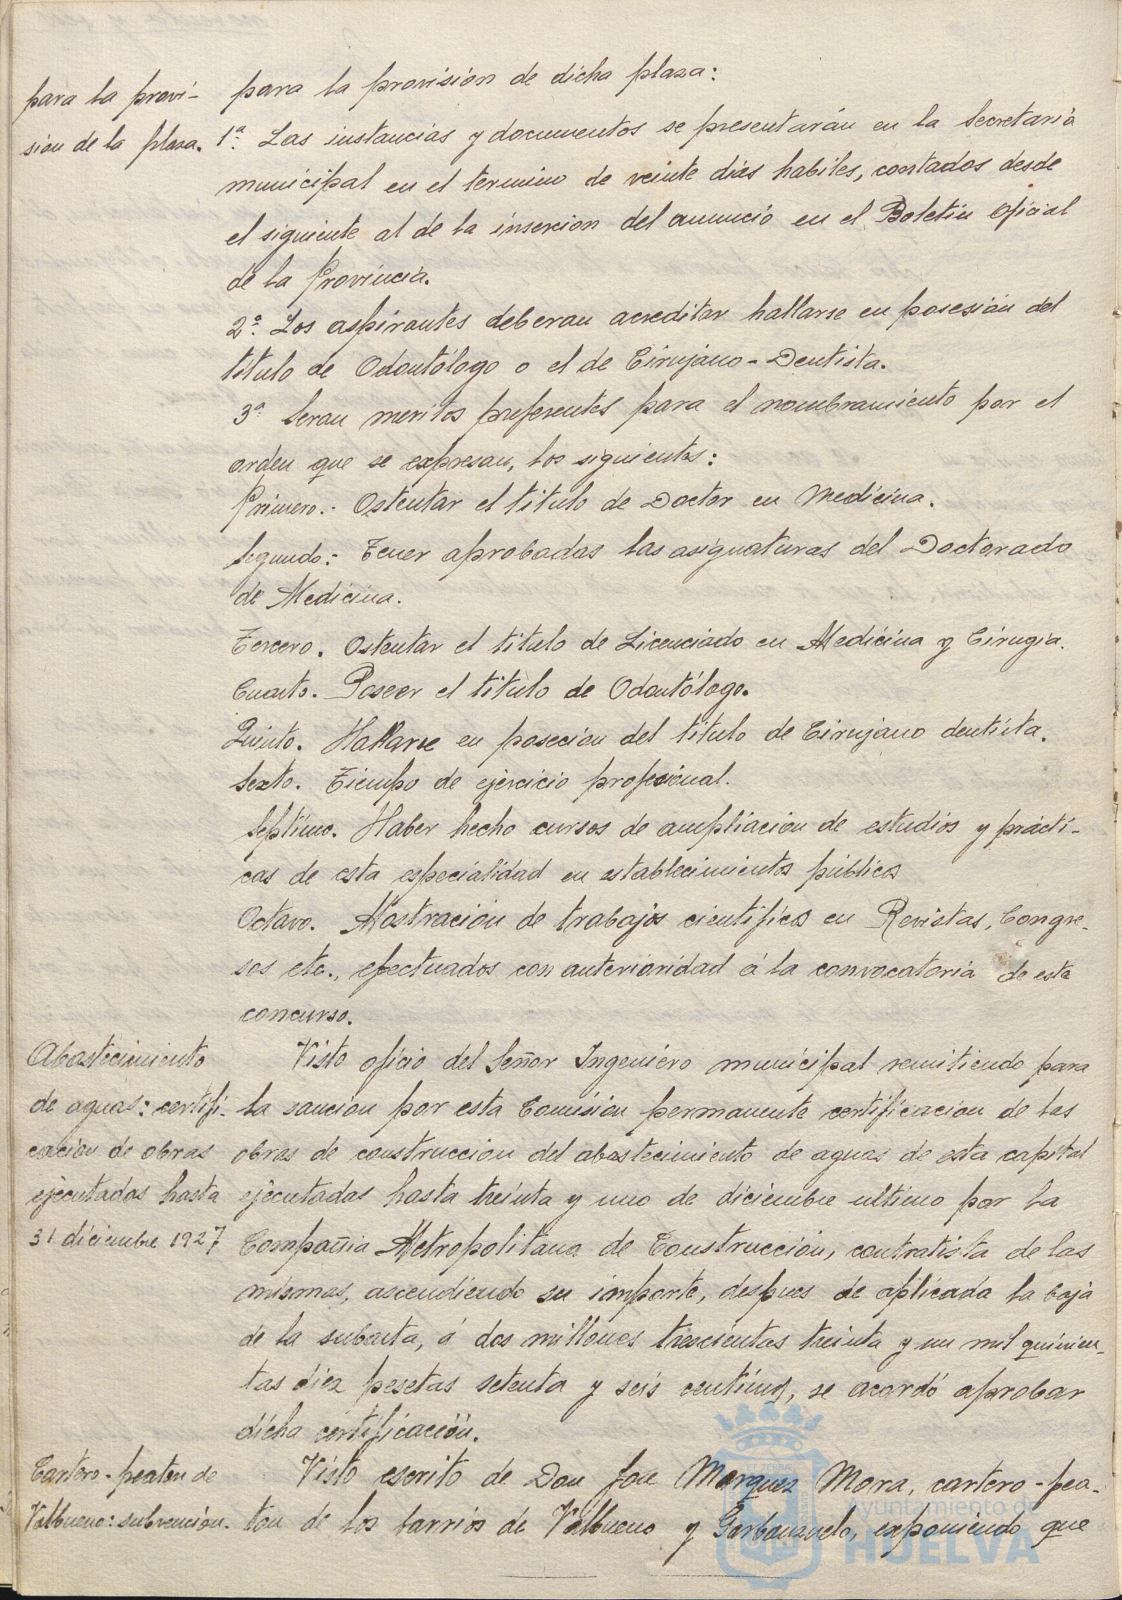 para la provi-
sion de la plaza.
para la provisión de dicha plaza:
1ª. Las instancias y documentos se presentarán en la Secretaria
municipal en el termino de veinte dias habiles, contados desde
el siguiente al de la insercion del anuncio en el Boletin Oficial
de la Provincia.
2ª. Los aspirantes deberan acreditar hallarse en posesión del
titulo de Odontólogo o el de Cirujano-Dentista.
3ª Seran meritos preferentes para el nombramiento por el
orden que se expresan, los siguientes:
Primero.- Ostentar el titulo de Doctor en Medicina.
Segundo: Tener aprobadas las asignaturas del Doctorado
de Medicina.
Tercero. Ostentar el titulo de Licenciado en Medicina y Cirugia.
Cuarto. Poseer el titulo de Odontólogo.
Quinto. Hallarse en posecion del titulo de Cirujano dentista.
Sexto. Tiempo de ejercicio profesional.
Septimo. Haber hecho cursos de ampliacion de estudios y practi-
cas de esta especialidad en establecimientos públicos
Octavo. Mostración de trabajos cientificos en Revistas, Congre-
sos etc., efectuados con anterioridad á la convocatoria de este
concurso.
Abastecimiento
de aguas: certifi-
cacion de obras
ejecutadas hasta
31 diciembre 1927
Visto oficio del Señor Ingeniero municipal remitiendo para
la sancion por esta Comisión permanente certificacion de las
obras de construccion del abastecimiento de aguas de esta capital
ejecutadas hasta treinta y uno de diciembre ultimo por la
Compañia Metropolitana de Construcción, contratista de las
mismas, ascendiendo su importe, despues de aplicada la baja
de la subasta, á dos millones trescientas treinta y un mil quinien-
tas diez pesetas setenta y seis centimos, se acordó aprobar
dicha certificación.
Cartero-peaton de
Valbueno: subvencion.
Visto escrito de Don Jose Marquez Mora, cartero-pea-
ton de los barrios de Valbueno y Garbanzuelo, exponiendo que
Ayuntamiento de
HUELVA